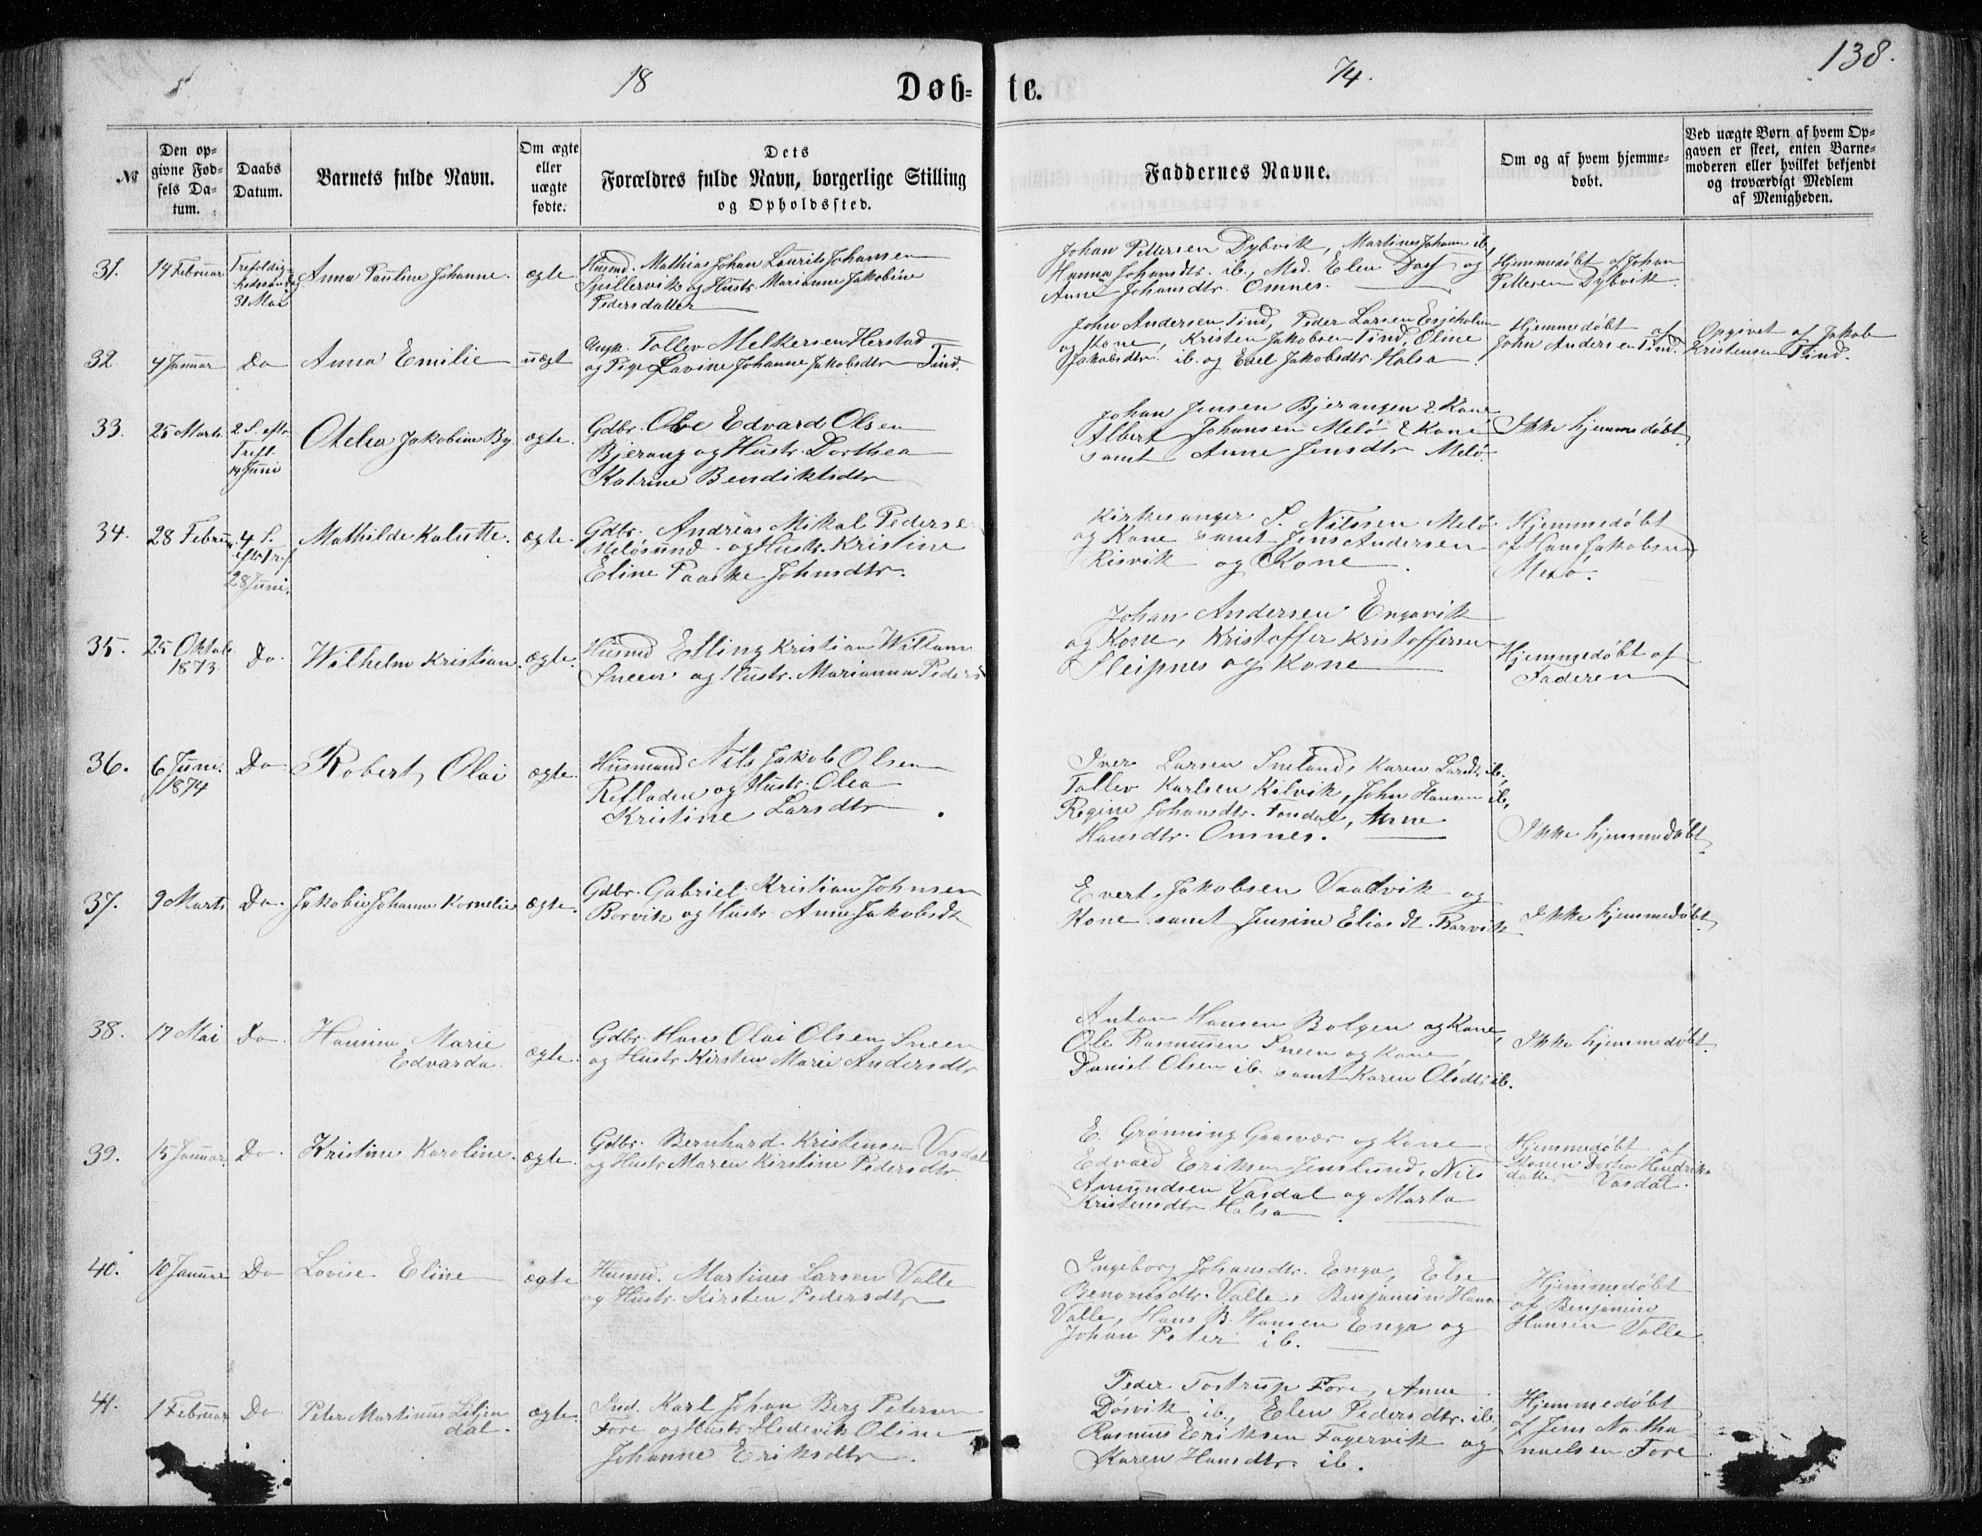 18 Døb= te. 74. 138.
№
Den op-
givne Fød-
sels Da-
tum.
Daabs
Datum.
Barnets fulde Navn.
Om ægte
eller
uægte
fødte.
Dets
Forældres fulde Navn, borgerlige Stilling
og Opholdssted.
Faddernes Navne.
Om og af hvem hjemme-
døbt.
Ved uægte Børn af hvem Op-
gaven er skeet, enten Barne-
moderen eller hvilket bekjendt
og troværdigt Medlem
af Menigheden.
31.
14 Februar
31 Mai
Anna Pauline Johanne.
ægte
Husmd. Mathias Johan Laurits Johansen
Spillervik og Hustr. Marianne Jakobine
Pedersdatter
Johan Pettersen Dybvik, Martines Johann ib,
Hanna Johansdtr. ib., Mad. Elen Dass og
Anne Johansdtr. Omnes.
Hjemmedøbt af Johan
Pettersen Dybvik.
32
4 Januar
Do
Anna Emilie
uægt
Ungk. Tollev Melkersen Herstad
og Pige Lavine Johanne Jakobsdtr Tind.
John Andersen Tind, Peder Larsen Esjeholm
og Kone, Kristen Jakobsen Tind, Oline
Jakobsdtr. ib. og Enel Jakobsdtr Halsa
Hjemmedøbt af
John Andersen Tind.
Opgivet af Jakob
Kristensen Tind.
33.
25 Marts
2 S. eftr
Tref.
14 Juni
Otelia Jakobine By.
ægte.
Gdbr. Ole Edvard Olsen
Bjerang og Hustr. Dorthea
Katrine Bendiktsdtr
Johan Jensen Bjerangen & Kone
Albert Johansen Melø & Kone
samt Anne Jensdtr Melø.
Ikke hjemmedøbt
34.
28 Februar
4 S.
28 Juni.
Mathilde Kalutte.
ægte.
Gdbr. Andreas Mikal Pederse
Meløsund og Hustr. Kristine
Eline Paaske Johnsdtr.
Kirkesanger S. Nilssen Melø
og Kone samt Jens Andersen
Risvik og Kone.
Hjemmedøbt
af Hans Jakobsen
Melø.
35.
25 Oktob.
1873.
Do.
Wilhelm Kristian.
ægte.
Husmd Elling Kristian Willam
Sneen og Hustr. Marianna Peders
Johan Andersen Engavik
og Kone, Kristoffer Kristoffersen
Sleipnes og Kone
Hjemmedøbt af
Faderen
36.
6 Juni.
1874
Do
Robert, Olai
ægte.
Husmand Nils Jakob Olsen
Refladen og Hustr. Olea
Kristine Larsdtr.
Iver Larsen Sneland, Karen Larsdtr. ib.,
Tollev Karlsen Kilvik, John Hansen ib,
Regine Johansdtr. Fondal, Anne
Hansdtr. Omnes.
Ikke hjemmedøbt.
37.
9 Marts
Do.
Jakobie Johanne Kornelie
ægte.
Gdbr. Gabriel Kristian Johnsen
Borvik og Hustr. Anne Jakobsdt
Evert Jakobsen Vaatvik og
Kone samt Jensine Eliasdt. Borvik
Ikke hjemmedøbt.
38.
17 Mai
Do
Hansine Marie
Edvarda.
ægte.
Gdbr. Hans Olai Olsen Sneen
og Hustr. Kirsten Marie Andersdtr
Anton Hansen Bolgen og Kone,
Ole Rasmusen Sneen og Kone,
Daniel Olsen ib. samt Karen Olsdtr ib.
Ikke hjemmedøbt.
39.
15 Januar.
Do.
Kristine Karoline.
ægte.
Gdbr. Bernhard Kristensen Vasdal
og Hustr Maren Kirstine Pedersdtr.
E. Grønning Gaasvær og Kone
Edvard Eriksen Jenslund, Nils
Amundsen Vasdal og Marta
Kristensdtr Halsa
Hjemmedøbt af
Konen Dortea Hendriks
datter Vasdal.
40.
10 Januar
Do
Lovise Eline
ægte
Husmd. Martines Larsen Valle
og Hustr. Kirsten Pedersdtr
Ingeborg Johansdtr. Enga, Else
Benonisdtr. Valle, Benjamin Hans
Valle, Hans B. Hansen Enga og
Johan Peter ib.
Hjemmedøbt
af Benjamin
Hansen Valle.
41.
1 Februar
Do
Peter Martinus Liljen
dal.
ægte.
Ind. Karl Johan Berg Petersen
Fore og Hustr Hedevik Oline
Johanne Eriksdtr.
Peder Tostrup Fore, Anne
Døsvik ib., Elen Pedersdtr. ib,
Rasmus Eriksen Fagervik og
Karen Hansdtr. ib.
Hjemmedøbt
af Jens Natha
naelsen Fore